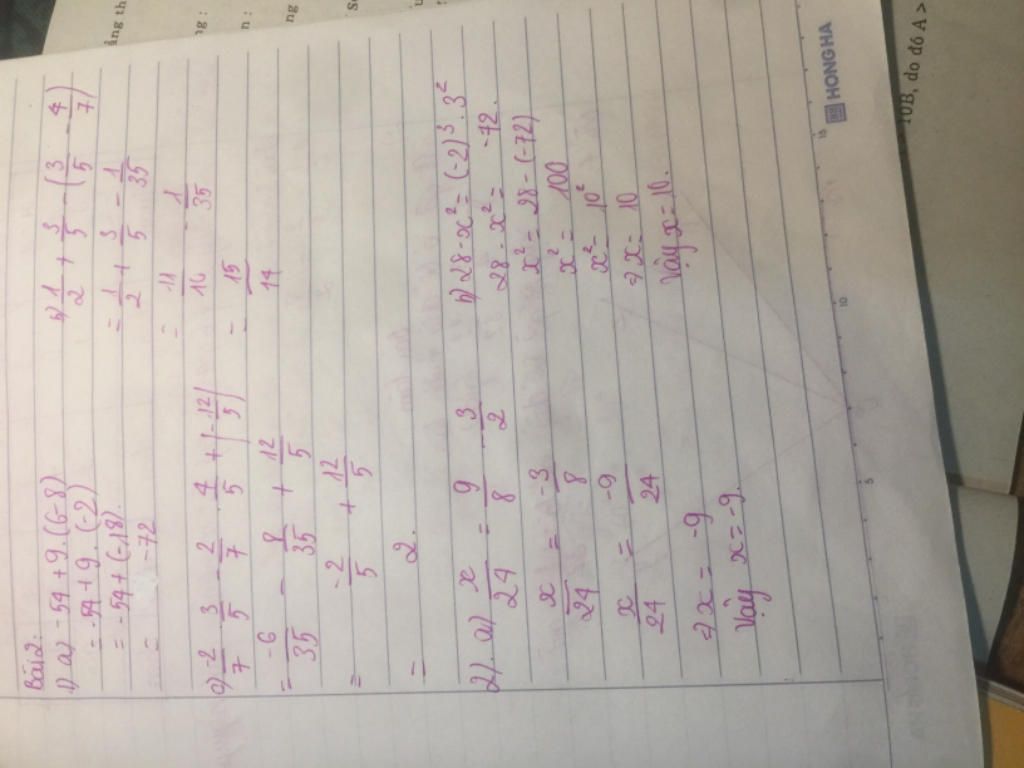 Bài 2:
1) a) -54 + 9.(6-8)
= -54 + 9.(-2)
= -54 + (-18).
= -72
b) 1/2 + 3/5 - (3/5 - 4/7)
= 1/2 + 3/5 - 1/35
= 11/10 - 1/35
= 15/14
c) -2/7 . 3/5 - 2/7 . 4/5 + (-12/5)
= -6/35 - 8/35 + 12/5
= -2/5 + 12/5
= 2.
2). a) x/24 = 9/8 - 3/2
x/24 = -3/8
x/24 = -9/24
=> x = -9
Vậy x = -9.
b) 28 - x² = (-2)³ . 3²
28 - x² = -72.
x² = 28 - (-72)
x² = 100
x² = 10²
=> x = 10
Vậy x = 10.
5
10
15
HONG HA
10B, do đó A >